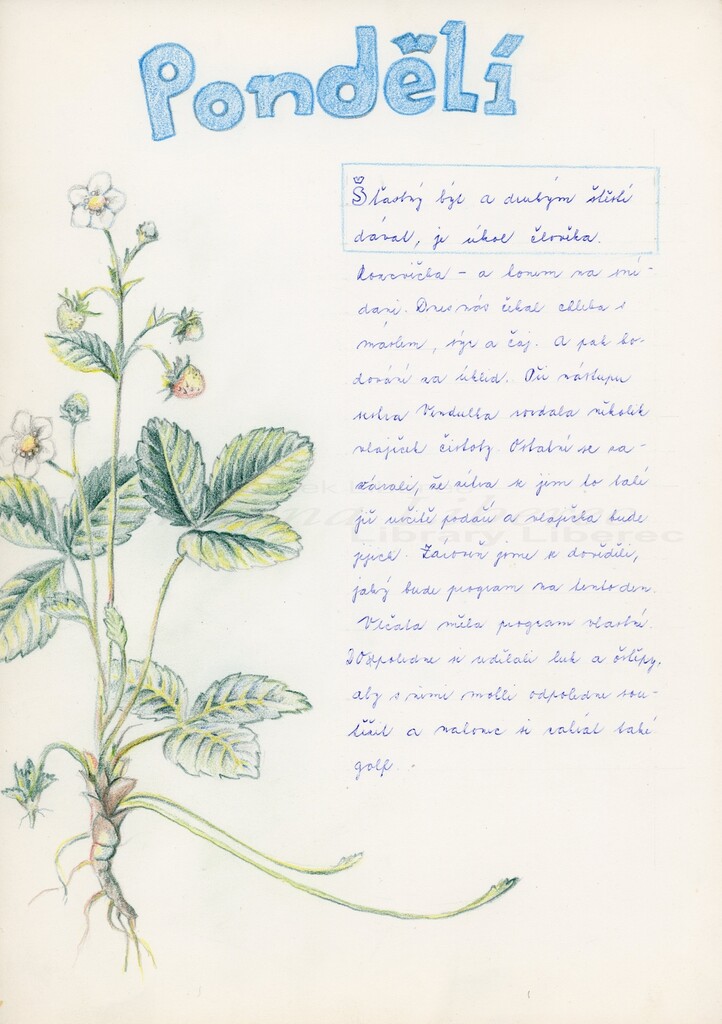 Pondělí
Šťastný být a druhým štěstí
dávat, je úkol člověka.
Rozcvička – a honem na sní-
dani. Dnes nás čekal chleba s
máslem, sýr a čaj. A pak bo-
dování za úklid. Při nástupu
sestra Vendulka rozdala několik
vlaječek čistoty. Ostatní se za-
že zítra se jim to také
již určitě podaří a vlaječka bude
jejich. Zároveň jsme se dověděli,
jaký bude program na tento den.
Vlčata měla program vlastní.
DOdpoledne si udělali luk a oštěpy,
aby s nimi mohli odpoledne sou-
těžit a nakonec si zahrál také
golf.
Library Liberec